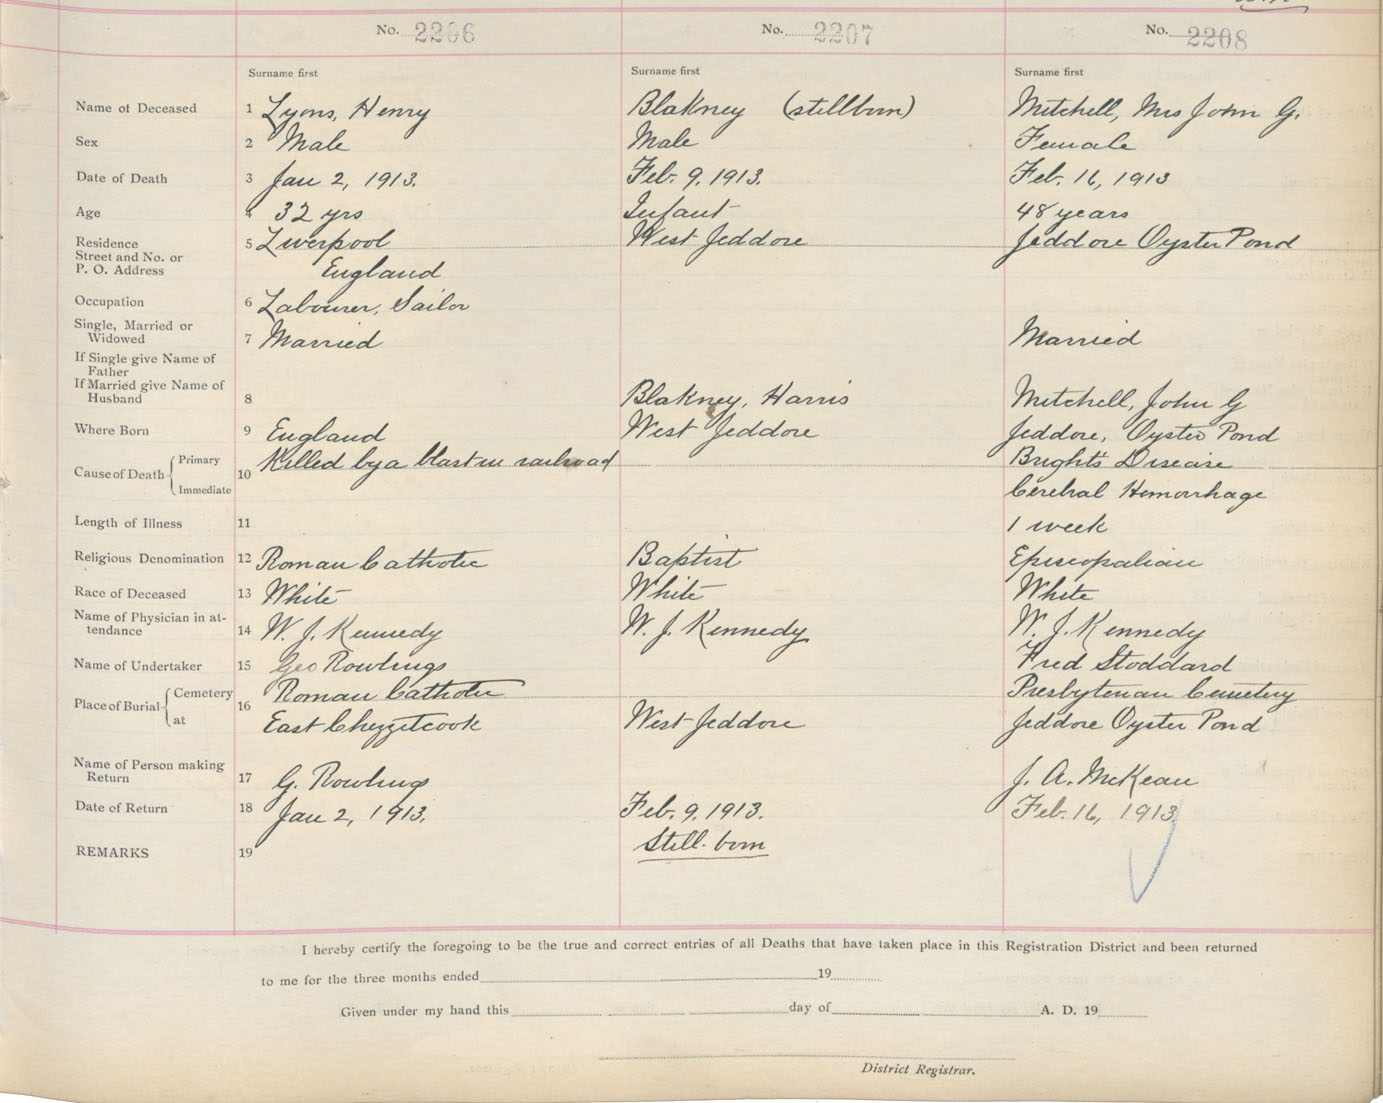 No. 2206 No. 2207 No. 2208
Surname first Surname first Surname first
Name of Deceased 1 Lyons, Henry Blakney (stillborn) Mitchell, Mrs John G.
Sex 2 Male Male Female
Date of Death 3 Jan 2, 1913. Feb. 9, 1913. Feb. 16, 1913
Age 4 32 yrs Infant 48 years
Residence
Street and No. or
P. O. Address 5 Liverpool West Jeddore Jeddore Oyster Pond
England
Occupation 6 Labourer, Sailor
Single, Married or
Widowed 7 Married Married
If Single give Name of
Father
If Married give Name of
Husband 8 Blakney, Harris Mitchell, John G
Where Born 9 England West Jeddore Jeddore, Oyster Pond
Cause of Death Primary 10 Killed by a blast in railroad Bright's Disease
Immediate Cerebral Hemorrhage
Length of Illness 11 1 week
Religious Denomination 12 Roman Catholic Baptist Episcopalian
Race of Deceased 13 White White White
Name of Physician in at-
tendance 14 W. J. Kennedy W. J. Kennedy W. J. Kennedy
Name of Undertaker 15 Geo Rowlings Fred Stoddard
Place of Burial Cemetery 16 Roman Catholic Presbyterian Cemetery
at East Chezzetcook West Jeddore Jeddore Oyster Pond
Name of Person making
Return 17 G. Rowlings J. A. McKean
Date of Return 18 Jan 2, 1913. Feb. 9, 1913. Feb. 16, 1913
REMARKS 19 Still-born
I hereby certify the foregoing to be the true and correct entries of all Deaths that have taken place in this Registration District and been returned
to me for the three months ended 19
Given under my hand this day of A. D. 19
District Registrar.